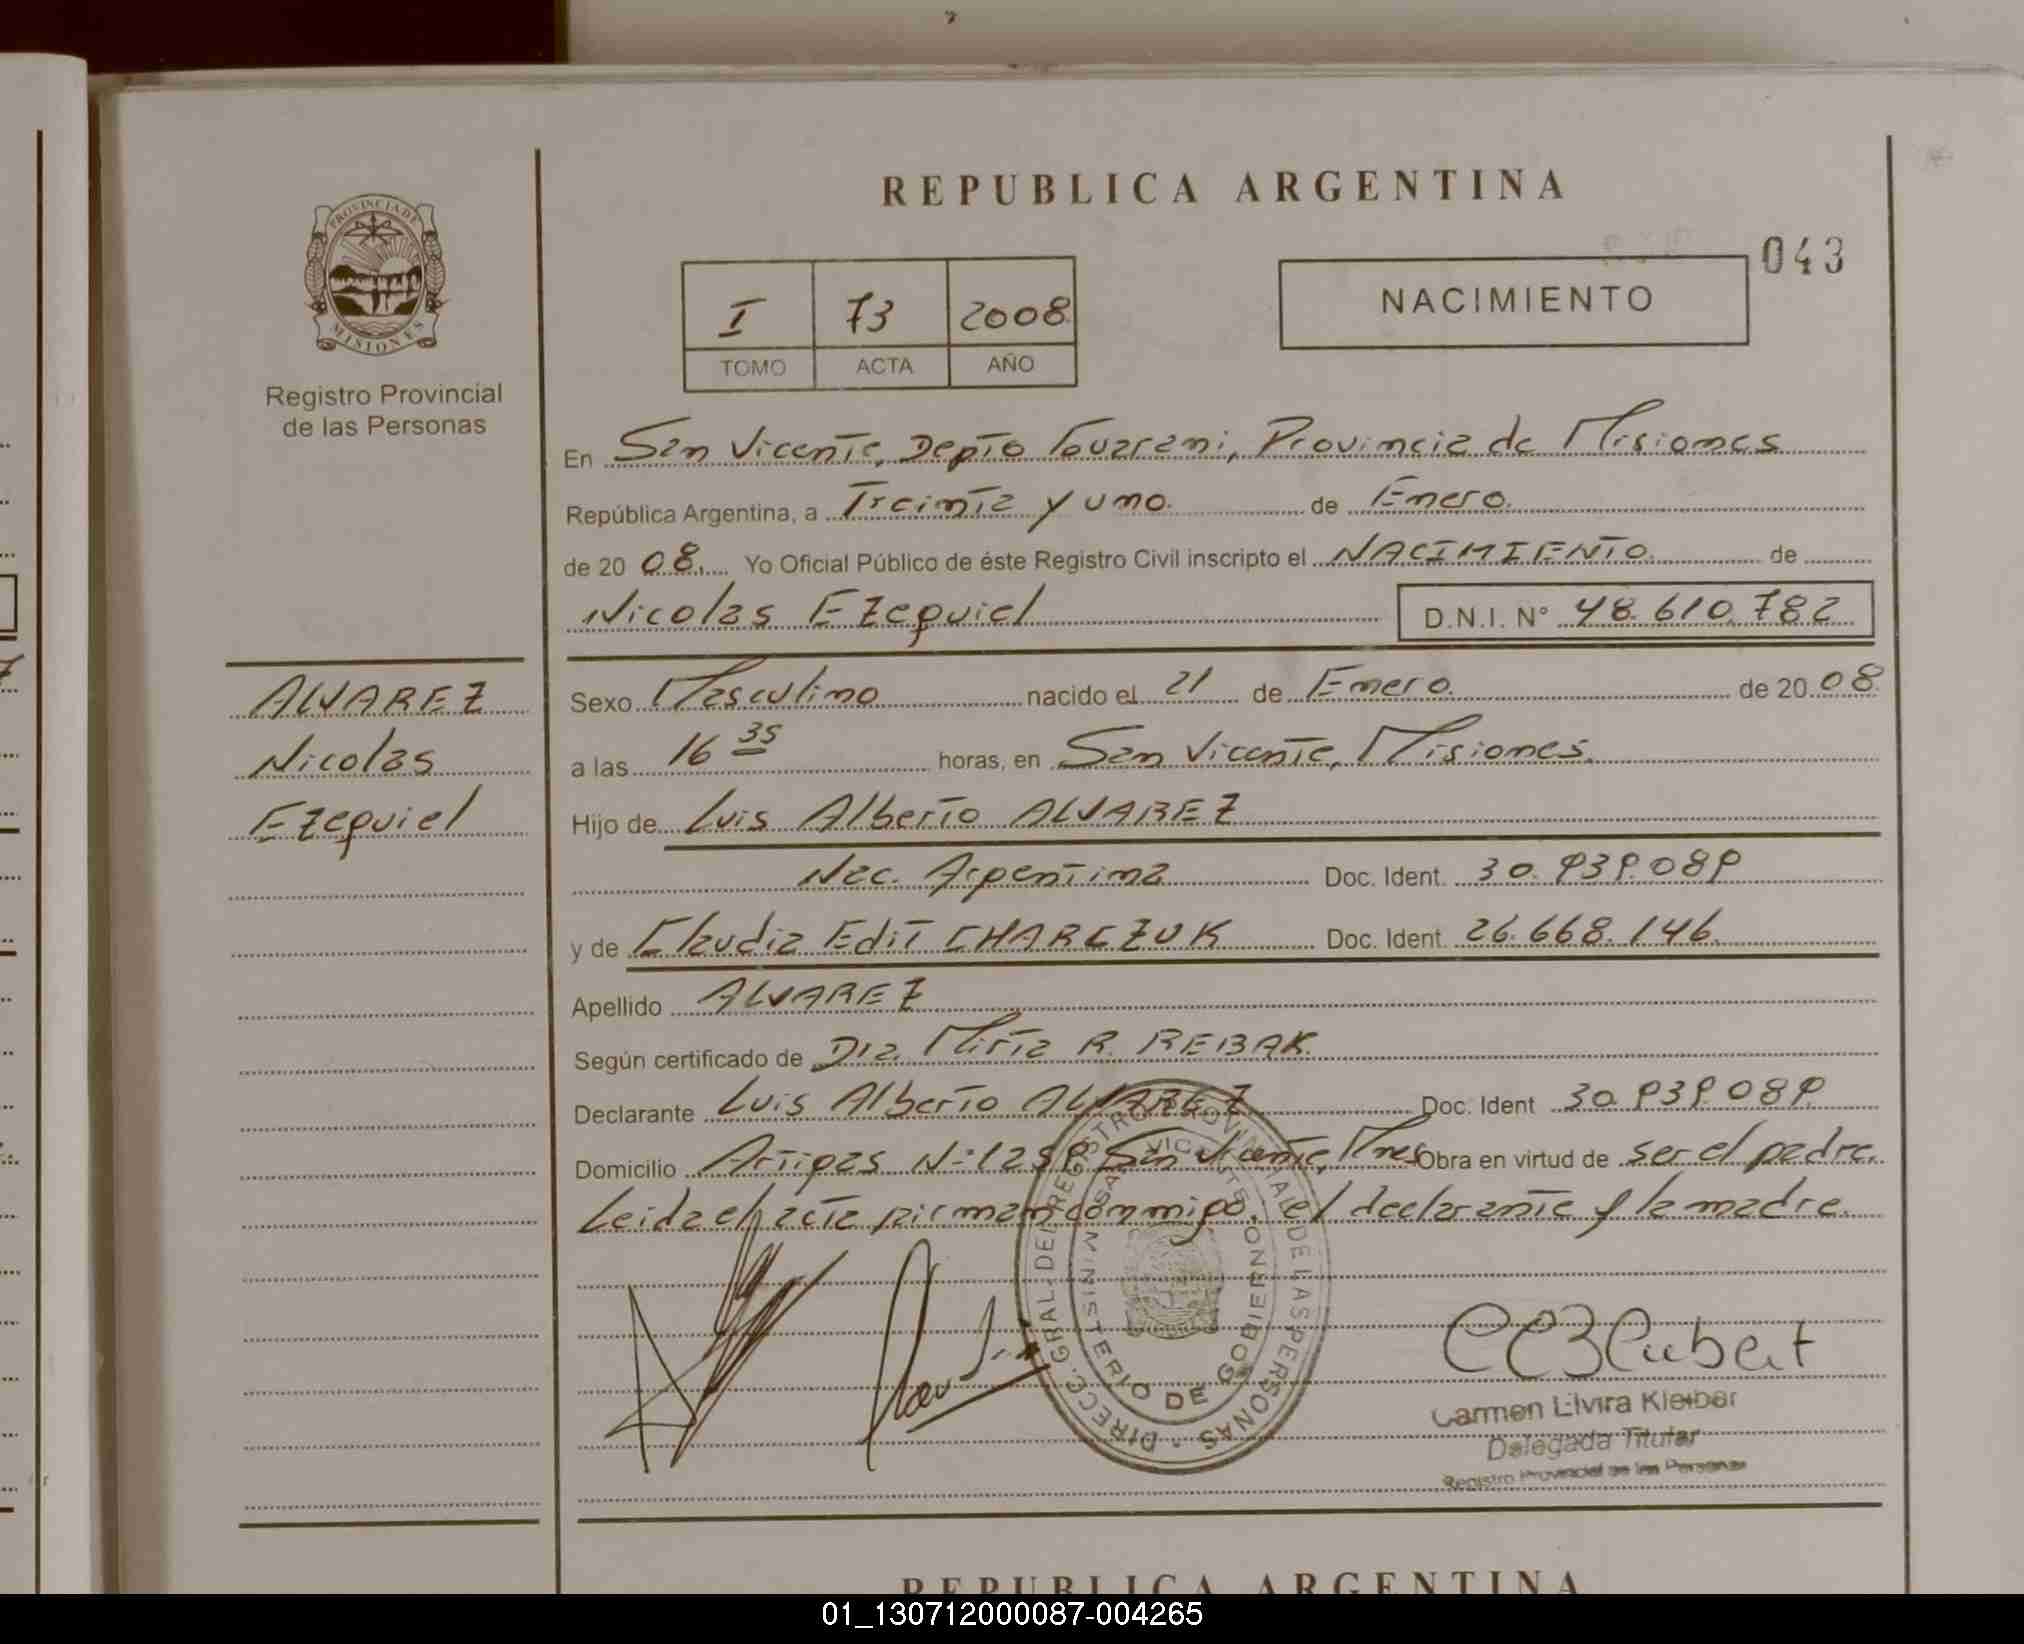 REPUBLICA ARGENTINA
043
PROVINCIA DE
MISIONES
Registro Provincial
de las Personas
I 73 2008
TOMO ACTA AÑO
NACIMIENTO
En San Vicente, Depto Guarani, Provincia de Misiones
República Argentina, a Treinta y uno. de Enero.
de 20 08. Yo Oficial Público de éste Registro Civil inscripto el NACIMIENTO. de
Nicolas Ezequiel D.N.I. N° 48.610.782
ALVAREZ
Nicolas
Ezequiel
Sexo Masculino nacido el 21 de Enero. de 20 08.
a las 16 35 horas, en San Vicente, Misiones.
Hijo de Luis Alberto ALVAREZ
Nac. Argentina Doc. Ident. 30.939.089
y de Claudia Edit CHARCZUK Doc. Ident. 26.668.146.
Apellido ALVAREZ
Según certificado de Dra. Mirta R. REBAK.
Declarante Luis Alberto ALVAREZ Doc. Ident 30.939.089
Domicilio Artigas N° 1259 San Vicente, Mnes Obra en virtud de ser el padre.
Leida el acta firman conmigo, el declarante y la madre.
DIRECC. GRAL. DEL REGISTRO PROVINCIAL DE LAS PERSONAS
SAN VICENTE
MINISTERIO DE GOBIERNO
Carmen Elvira Kleiber
Delegada Titular
Registro Provincial de las Personas
REPUBLICA ARGENTINA
01_130712000087-004265